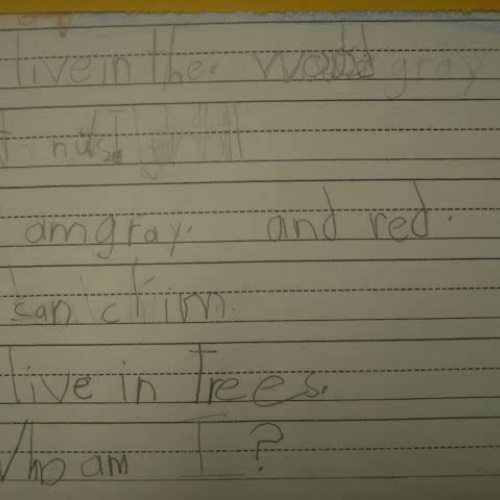 live in the. woods gray
t nuts.
am gray. and red.
can clim.
live in Trees.
Who am I?